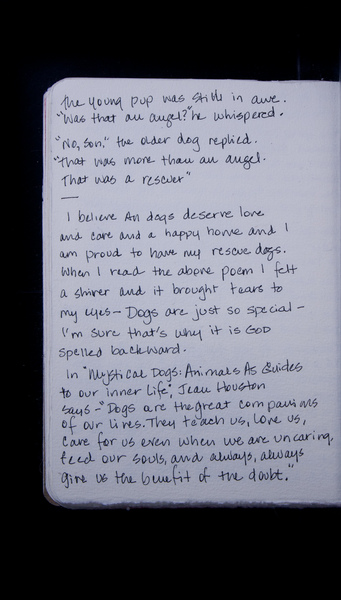 the young pup was still in awe.
"Was that an angel?" he whispered.
"No, son." the older dog replied.
"That was more than an angel.
That was a rescuer"
—
I believe All dogs deserve love
and care and a happy home and I
am proud to have my rescue dogs.
When I read the above poem I felt
a shiver and it brought tears to
my eyes - Dogs are just so special -
I'm sure that's why it is GOD
spelled backward.
In "Mystical Dogs: Animals As Guides
to our inner life", Jean Houston
says - "Dogs are the great companions
of our lives. They teach us, love us,
care for us even when we are uncaring,
feed our souls, and always, always
give us the benefit of the doubt."